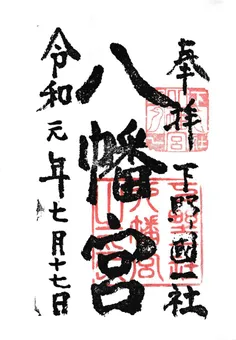 奉拝 下野國一社
八幡宮
令和元年七月十七日